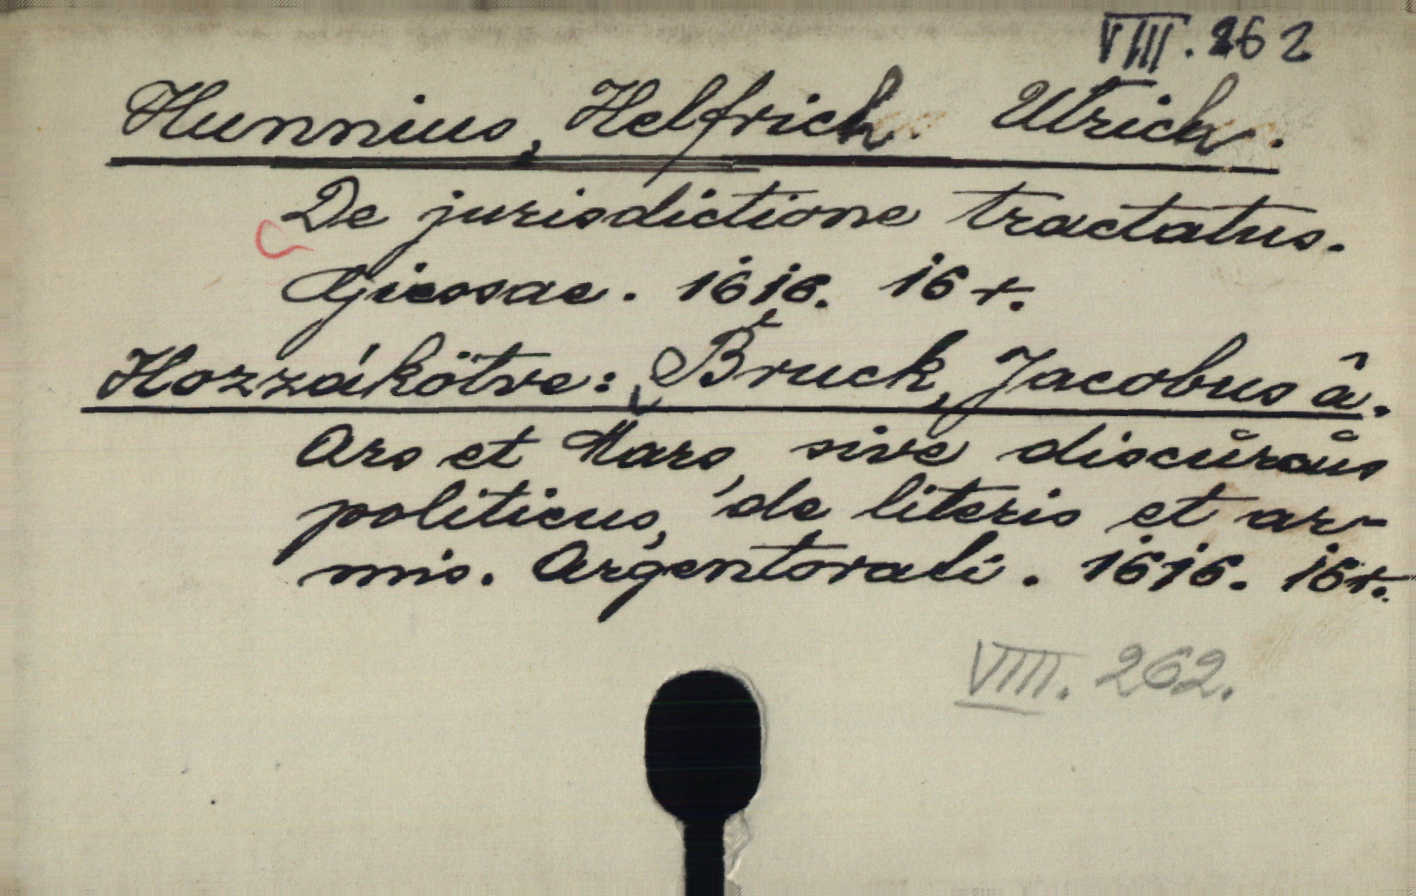 VIII. 262
Hunnius, Helfrich Ulrich.
De jurisdictione tractatus.
Giessae. 1616. 16 r.
Hozzákötve: Bruck, Jacobus â.
Ars et Mars, sive discůrsůs
politicus, de literis et ar-
mis. Argentorati. 1616. 16 r.
VIII. 262.